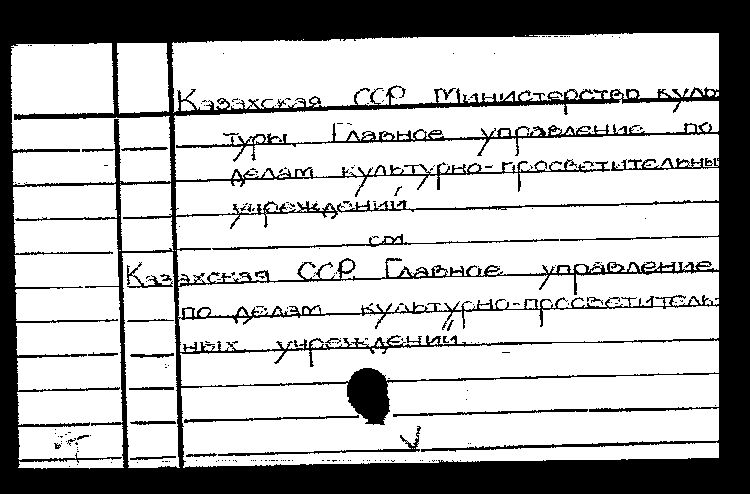 Казахская ССР Министерство куль-
туры. Главное управление по
делам культурно-просветительны
учреждений.
см.
Казахская ССР. Главное управление
по делам культурно-просветитель-
ных учреждений.